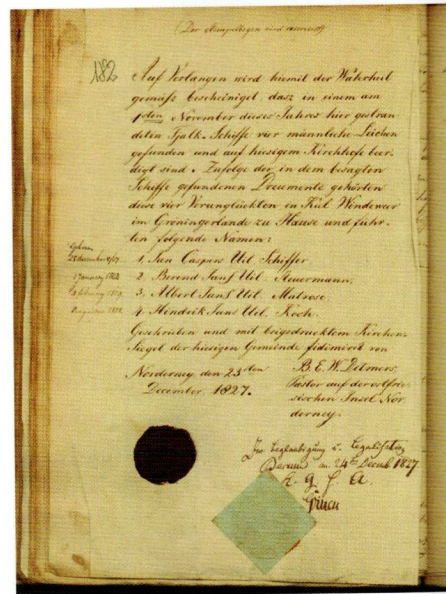 (Der Stempelbogen wird
182
Auf Verlangen wird hiemit der Wahrheit
gemäß bescheinigt, dasz in einem am
1sten November dieses Jahres hier gestran
deten Tjalk-Schiffe vier männliche Leichen
gefunden und auf hiesigem Kirchhofe beer-
digt sind. Zufolge der in dem besagten
Schiffe gefundenen Documente gehörten
diese vier Verunglückten in Kiel Wendeweer
im Gröningerlande zu Hause und führ-
ten folgende Namen:
1, Jan Caspers Uil Schiffer
2, Berend Jans Uil Steuermann,
3, Albert Jans Uil Matrose
4, Hendrik Jans Uil Koch.
Geschrieben und mit beigedrucktem Kirchen-
Siegel der hiesigen Gemeinde fidimirt von
Norderney den 23sten
December 1827.
B. E. W. Ditmers,
Pastor auf der ostfrie-
sischen Insel Nor
derney.
Zur Beglaubigung u. Legalisation
Berum am 24t Decemb 1827